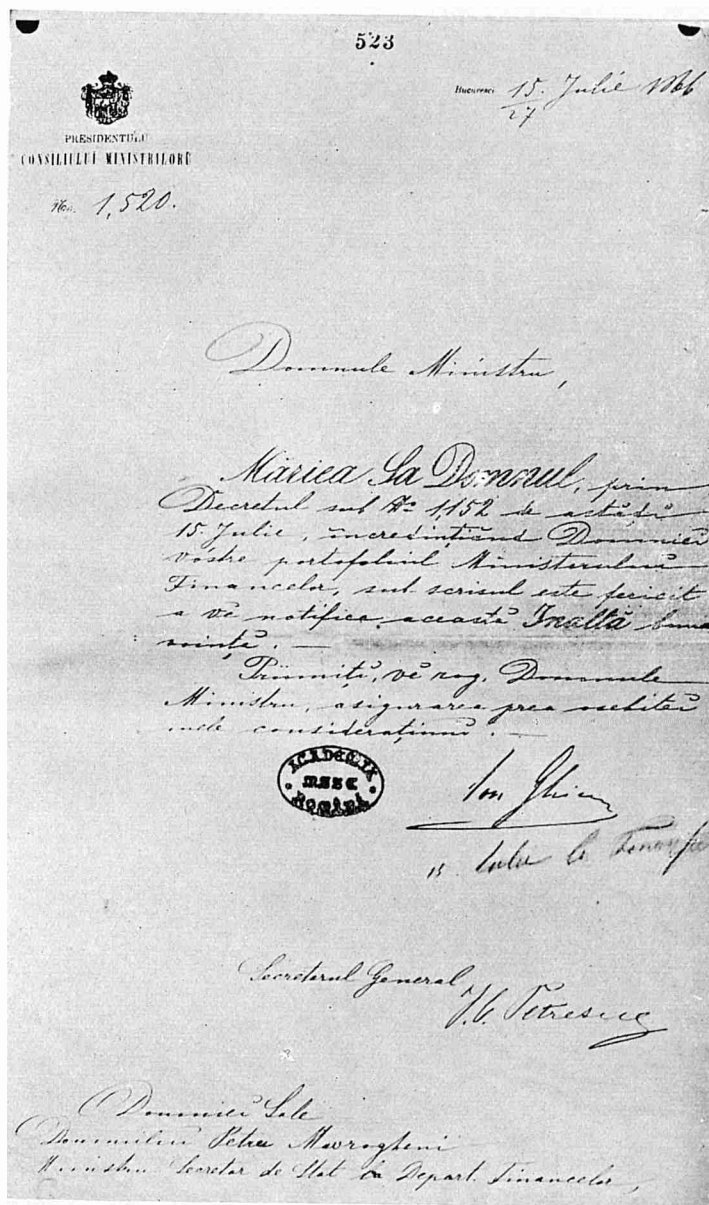 523
Bucuresci 15. Julie 1866
27
PRESIDENTULU
CONSILIULUI MINISTRILORŬ
No. 1,520.
Domnule Ministru,
Măriea Sa Domnul, prin
Decretul sub No 1,152 de astădĭ
15. Julie, încredințiând Domniei
vóstre portofoliul Ministeruluĭ
Financelor, sub scrisul este fericit
a vĕ notifica această Inaltă buna
voință. —
Priimițĭ, vĕ rog, Domnule
Ministru, asigurarea prea osebiteĭ
mele considerațiunĭ. —
ACADEMIA
MSSE
ROMÂNĂ
Ion Ghica
15 Iulie la
Secretarul General,
Petrescu
Domniei Sale
Domnului Petru Mavrogheni
Ministru Secretar de Stat la Depart. Financelor,